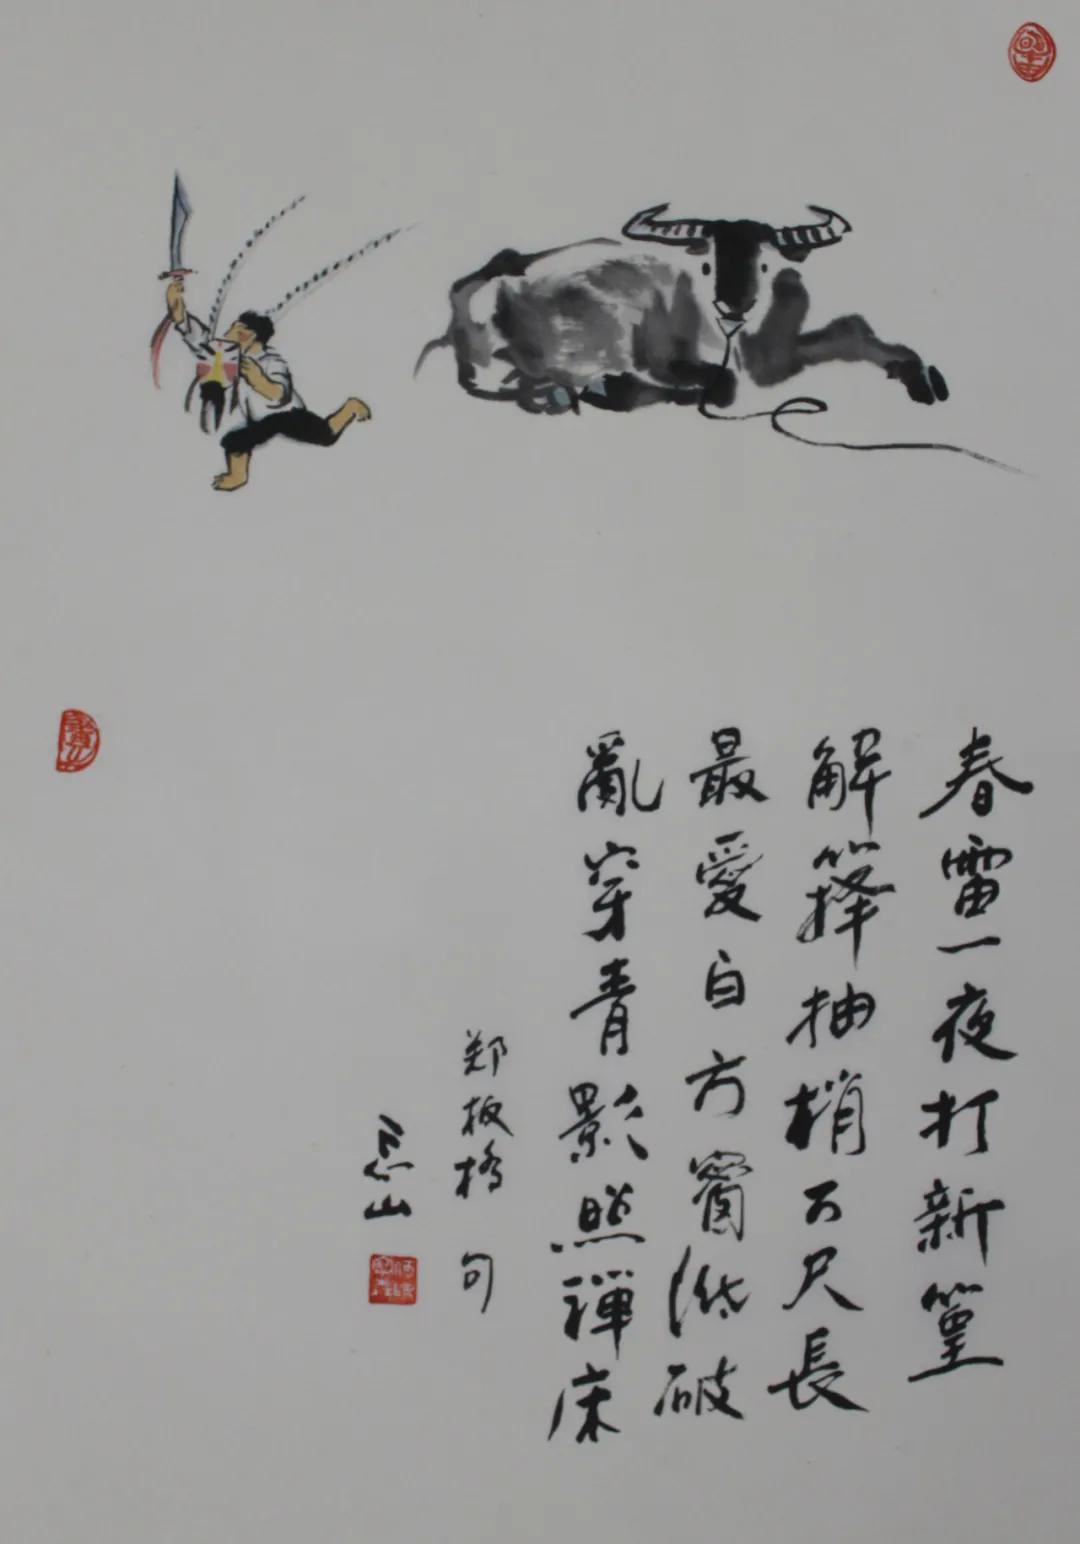 春雷一夜打新篁
解箨抽梢万尺長
最愛白方窗纸破
亂穿青影照禪床
郑板橋 句
山